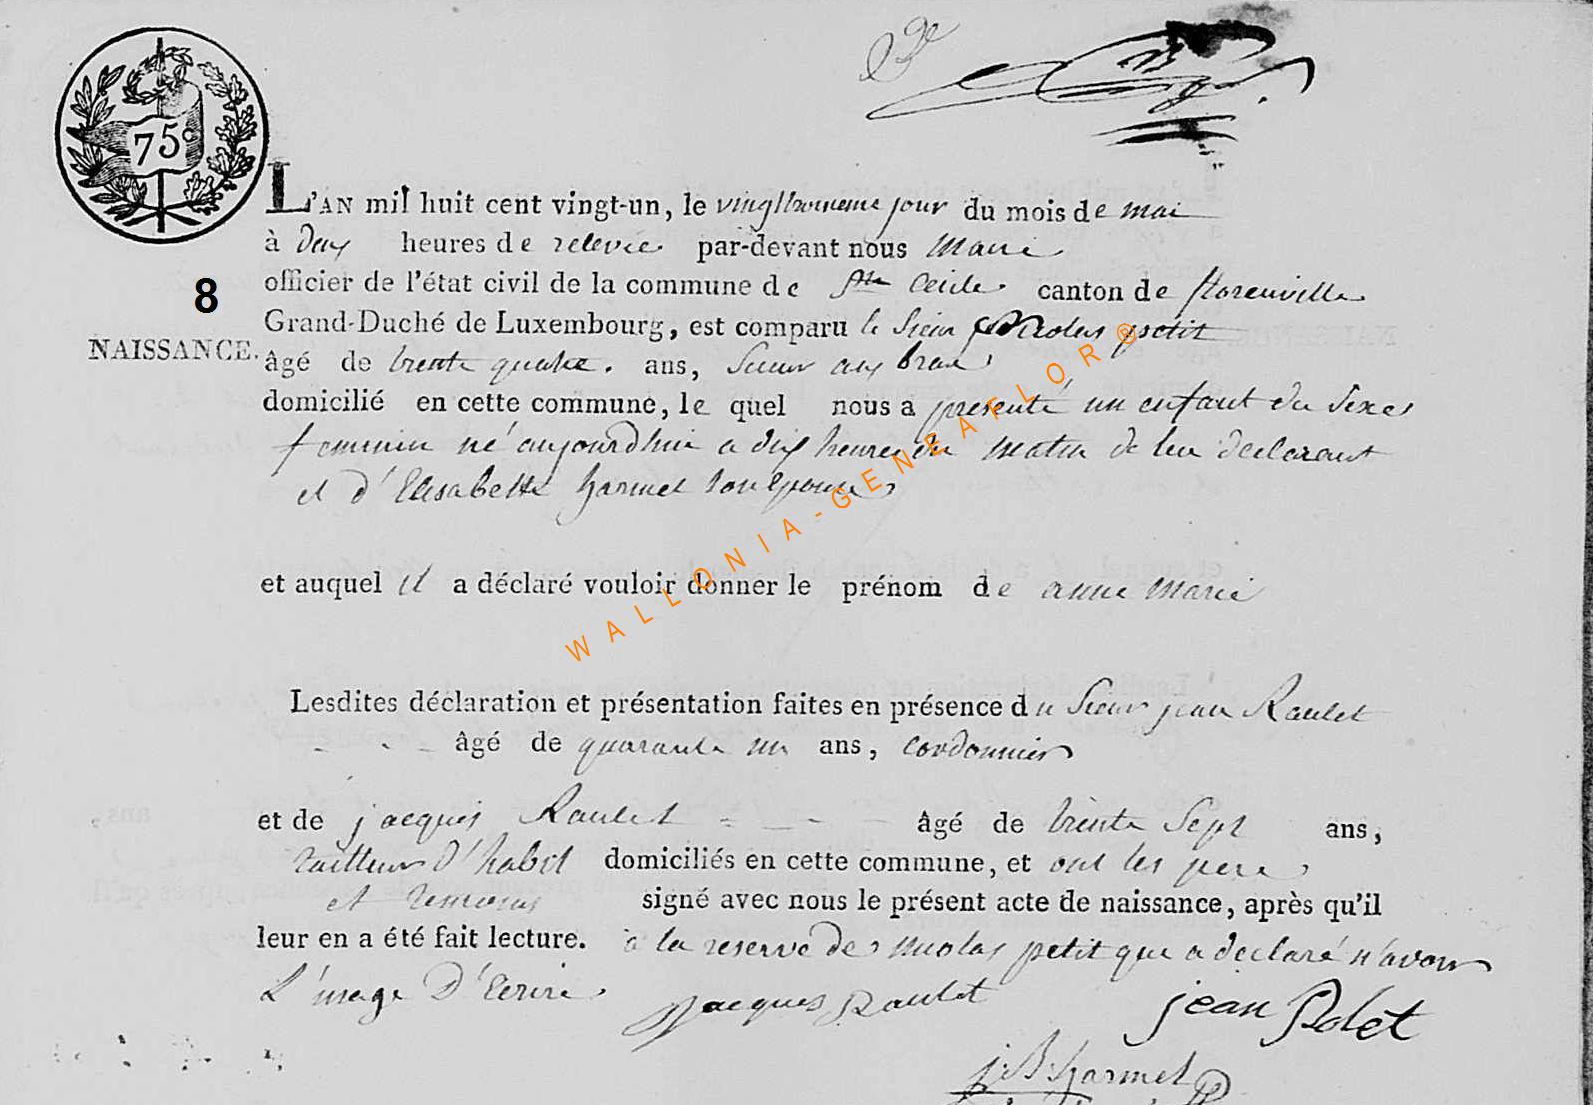 75c
L'AN mil huit cent vingt-un, le jour du mois de mai
à deux heures de relevée par-devant nous Maire
officier de l'état civil de la commune de Ste Cécile canton de florenville
Grand-Duché de Luxembourg, est comparu le Sieur Nicolas petit
8
NAISSANCE.
âgé de trente quatre ans,
domicilié en cette commune, le quel nous a présenté un enfant du Sexe
feminin né aujourdhui a dix heures du matin de lui declarant
et d'Elisabette harmel son epouse
et auquel il a déclaré vouloir donner le prénom de anne Marie
Lesdites déclaration et présentation faites en présence du Sieur jean Raulet
âgé de quarante un ans, cordonnier
et de jacques Raulet âgé de trente Sept ans,
tailleur d'habit domiciliés en cette commune, et ont les pere
et temoins signé avec nous le présent acte de naissance, après qu'il
leur en a été fait lecture. à la reserve de nicolas petit que a declaré n'avoir
L'usage D'Ecrire
jacques Raulet jean Rolet
j: B: harmel
WALLONIA-GENEAFLOR®